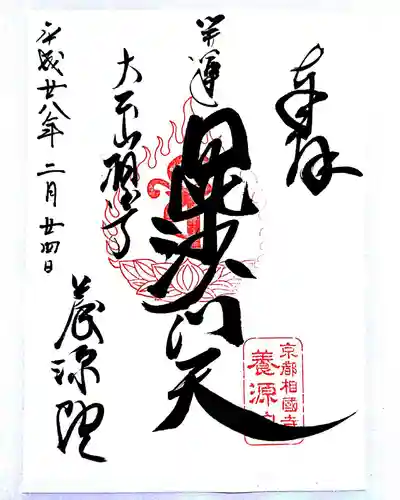 奉拝
開運
毘沙門天
大雲山開亭
平成廿八年 二月廿四日
養源院
京都相國寺
養源院